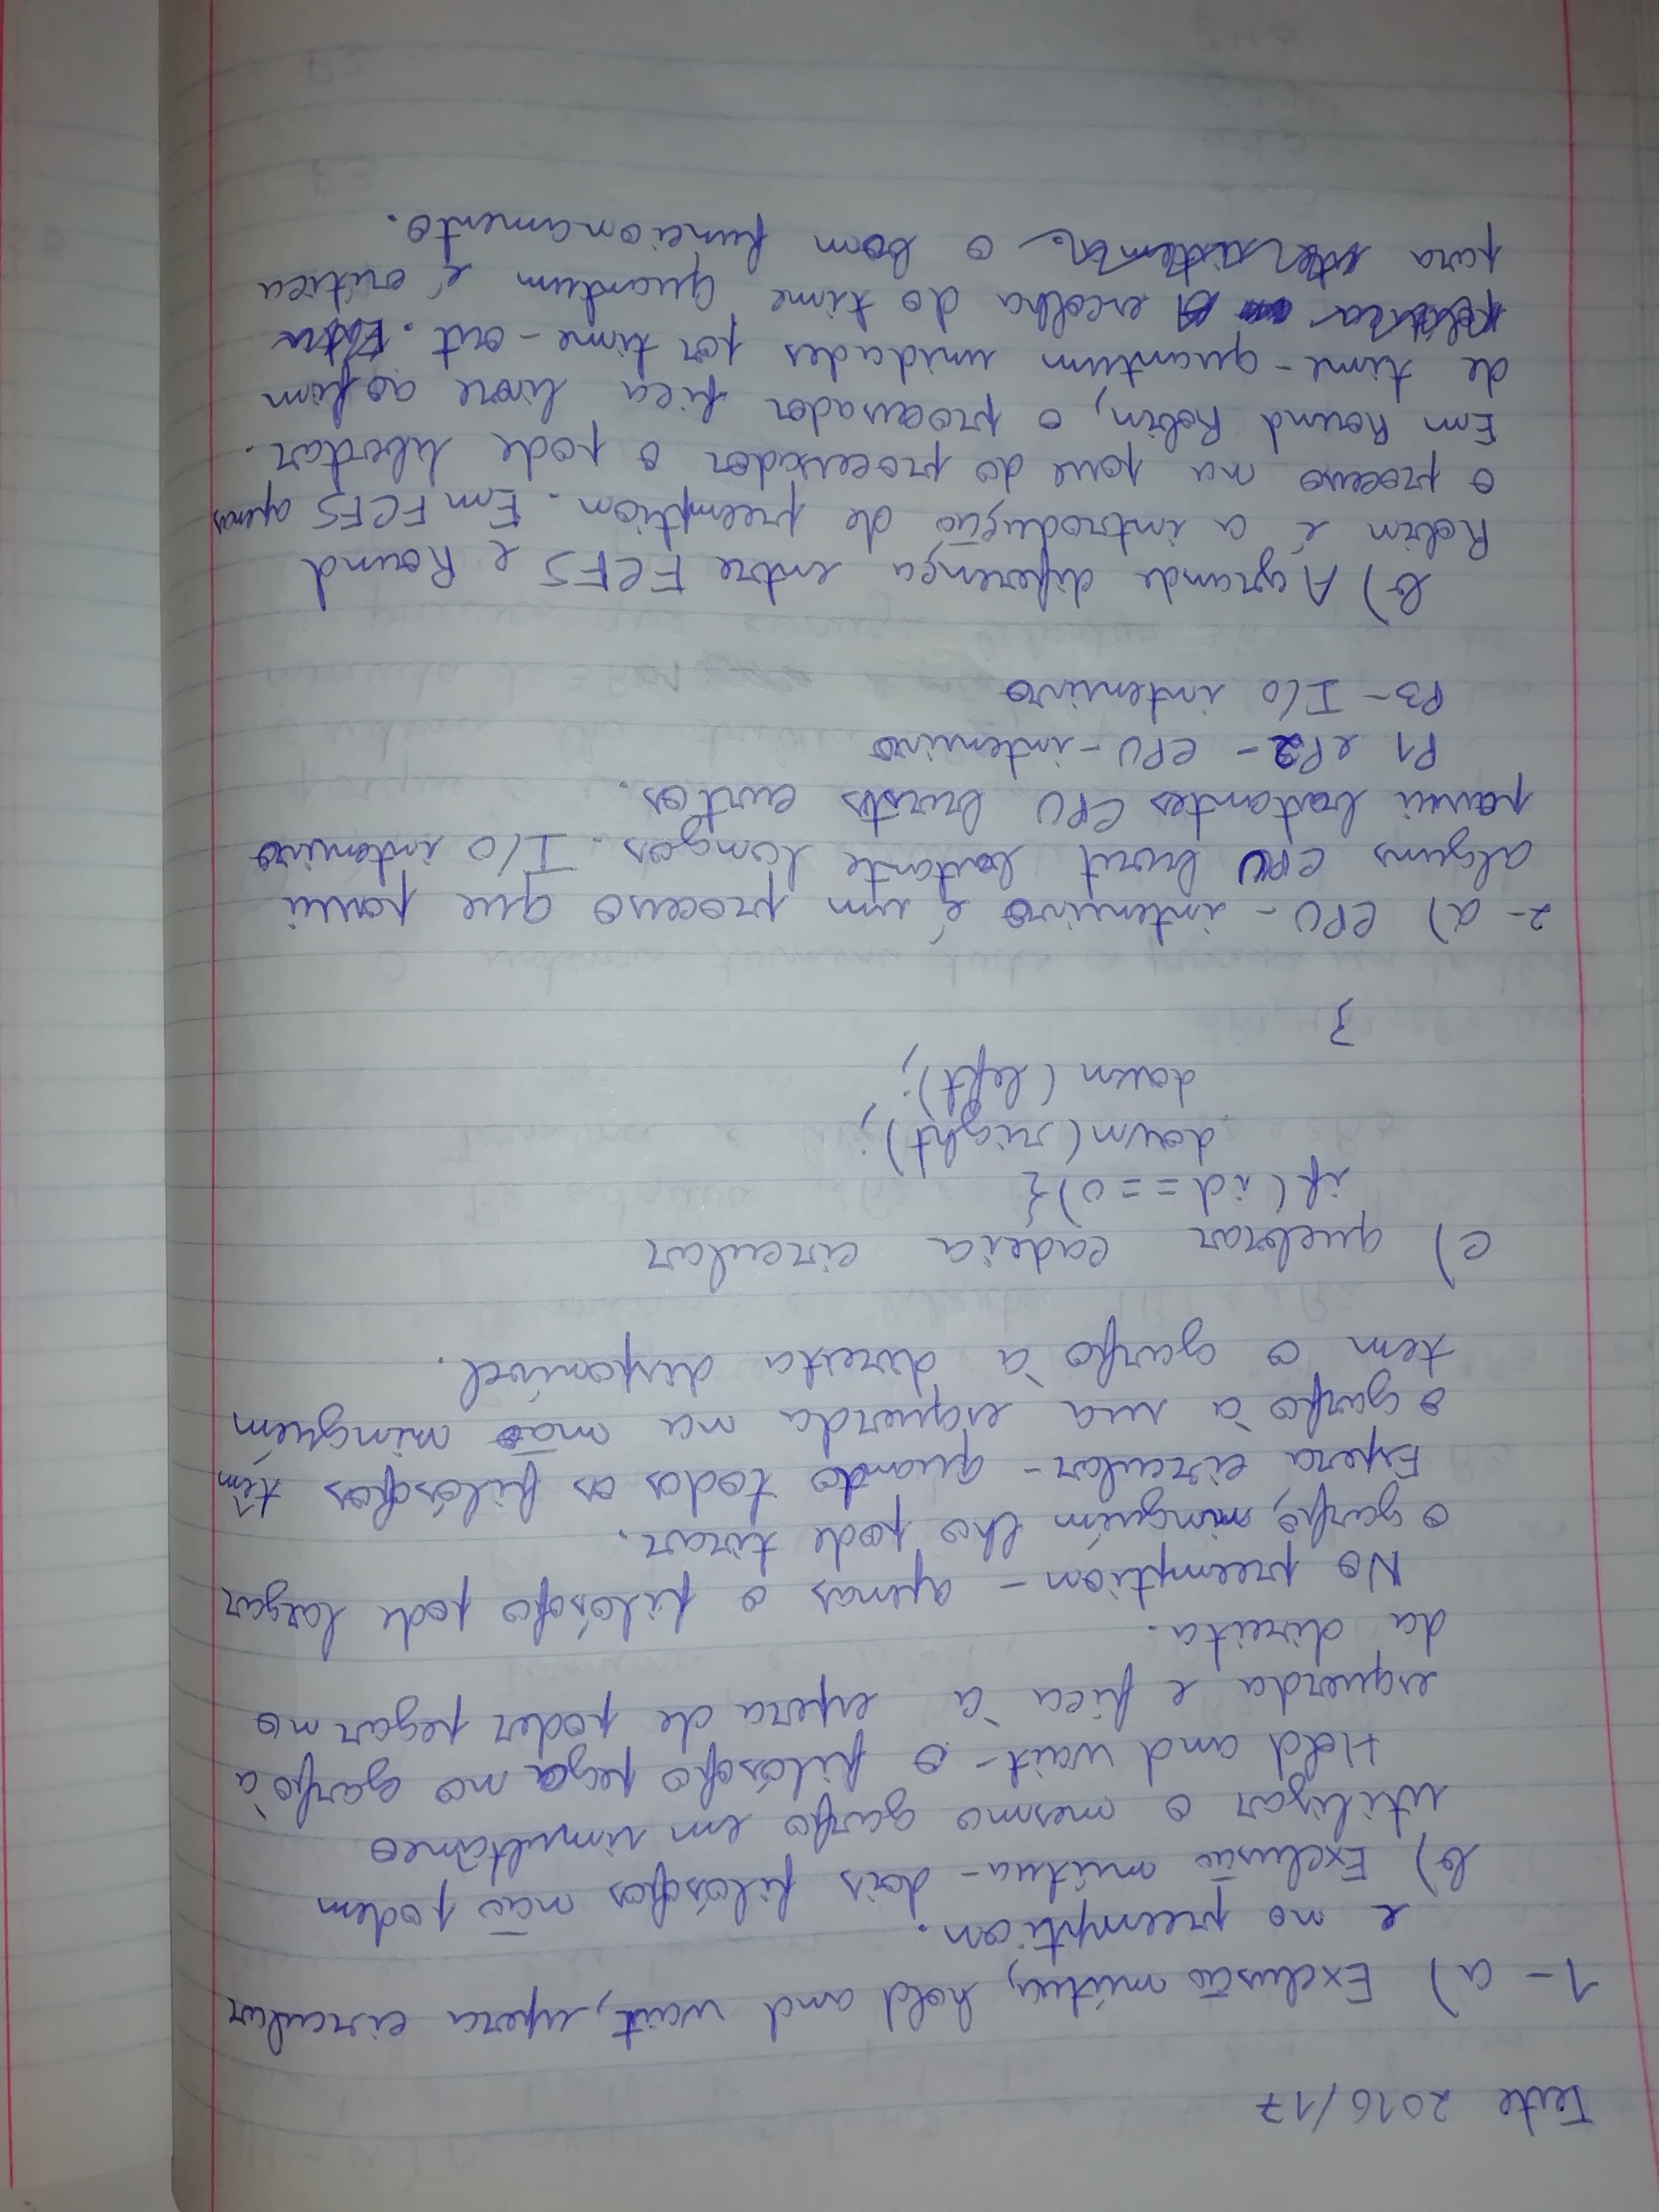 Teste 2016/17
1- a) Exclusão mútua, hold and wait, espera circular
e no preemption.
b) Exclusão mútua - dois filósofos não podem
utilizar o mesmo garfo em simultâneo
Hold and wait - o filósofo pega no garfo à
esquerda e fica à espera de poder pegar no
da direita.
No preemption - apenas o filósofo pode largar
o garfo, ninguém lho pode tirar.
Espera circular - quando todos os filósofos têm
o garfo à sua esquerda na mão ninguém
tem o garfo à direita disponível.
c) quebrar cadeia circular
if(id==0){
down(right);
down(left);
}
2- a) CPU - intensivo é um processo que possui
alguns CPU burst bastante longos. I/O intensivo
possui bastantes CPU bursts curtos.
P1 e P2 - CPU - intensivo
P3 - I/O intensivo
b) A grande diferença entre FCFS e Round
Robin é a introdução de preemption. Em FCFS apenas
o processo na posse do processador o pode libertar.
Em Round Robin, o processador fica livre ao fim
de time-quantum unidades por time-out.
A escolha do time quantum é crítica
para o bom funcionamento.